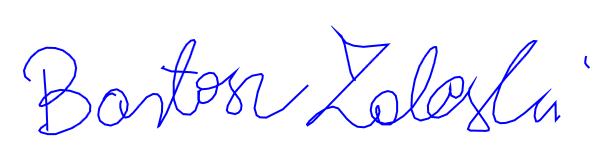 Bartosz Zaleski